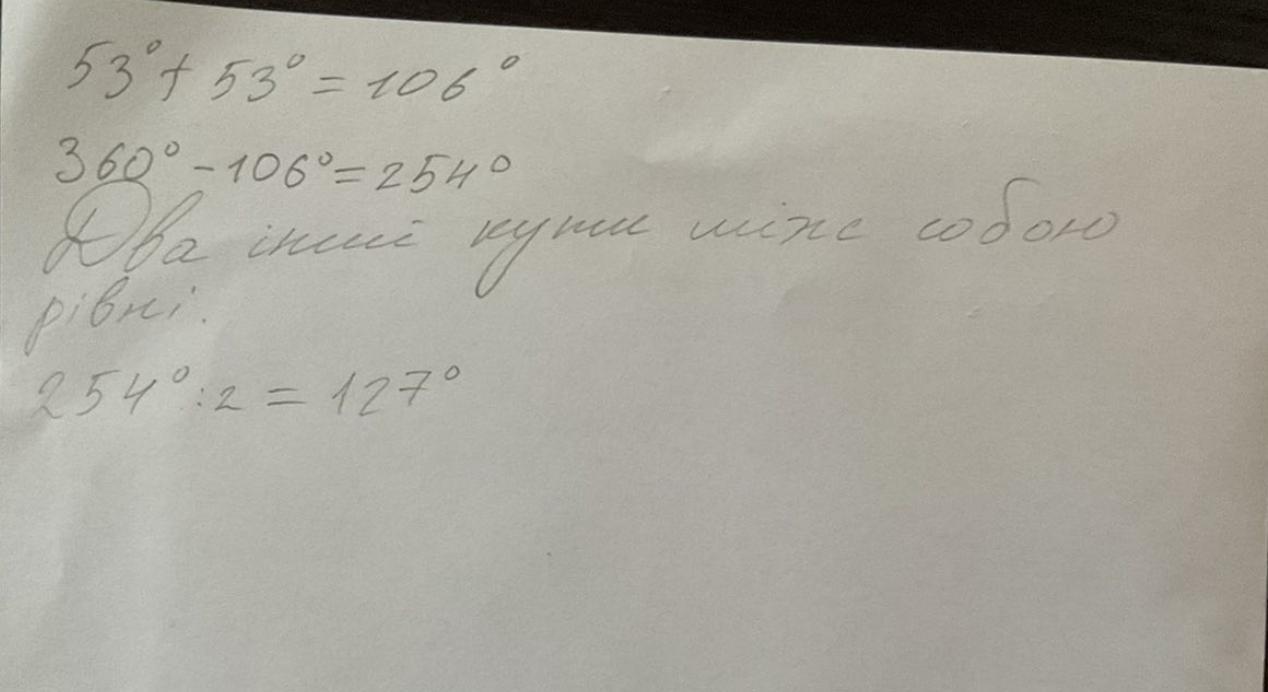 53° + 53° = 106°
360° - 106° = 254°
Два інші кути між собою
рівні.
254° : 2 = 127°